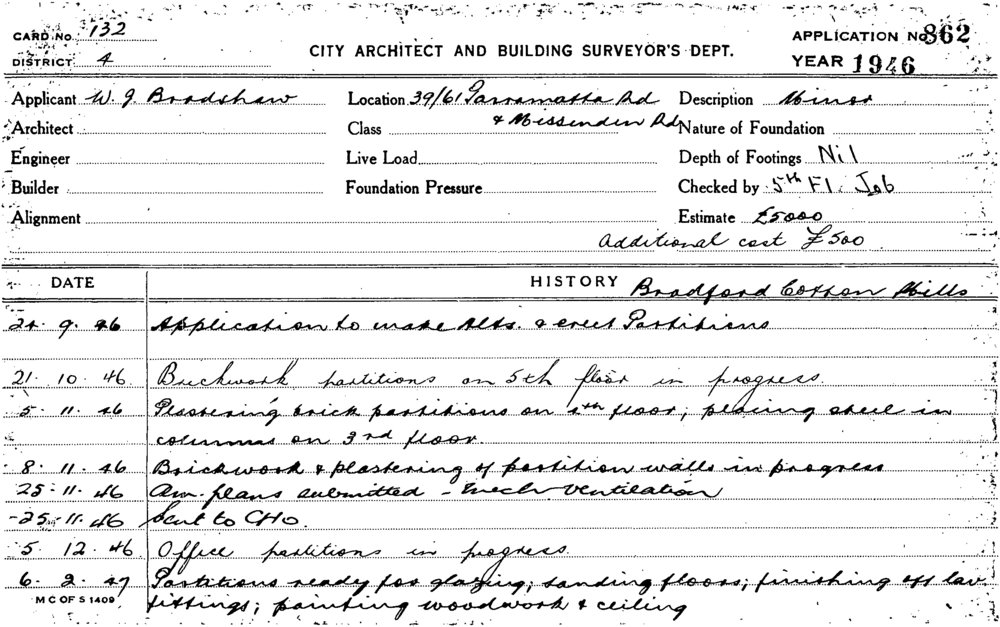 CARD No. 132
DISTRICT 4
CITY ARCHITECT AND BUILDING SURVEYOR'S DEPT.
APPLICATION No. 862
YEAR 1946
Applicant W. J. Bradshaw Location 39/61 Parramatta Rd Description Minor
Architect Class & Missenden Rd Nature of Foundation
Engineer Live Load Depth of Footings Nil
Builder Foundation Pressure Checked by 5th Fl. Job
Alignment Estimate £5000
Additional cost £500
DATE HISTORY Bradford Cotton Mills
24. 9. 46 Application to make Alts. & erect Partitions
21. 10. 46 Brickwork partitions on 5th floor in progress.
5. 11. 46 Plastering brick partitions on 4th floor; placing steel in
columns on 3rd floor.
8. 11. 46 Brickwork & plastering of partition walls in progress
25. 11. 46 Am. plans submitted - Mech. Ventilation
25. 11. 46 Sent to CHO.
5. 12. 46 Office partitions in progress.
6. 2. 47 Partitions ready for glazing; sanding floors; finishing off lav.
M C OF S 1409 fittings; painting woodwork & ceiling